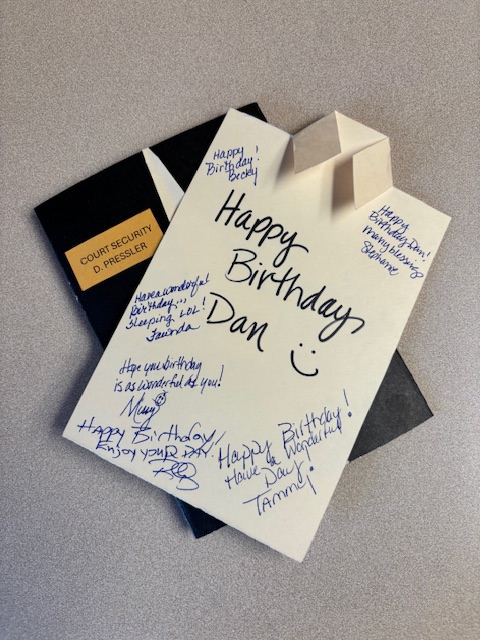 Happy
Birthday!
Becky
Happy
Birthday Dan!
many blessings
Stephanie
COURT SECURITY
D. PRESSLER
Happy
Birthday
Dan
Have a wonderful
Birthday...
Sleeping LOL!
Hope your birthday
is as wonderful as you!
Missy
Happy Birthday!
Enjoy your DAY!
Happy Birthday!
Have a Wonderful
Day!
Tammy